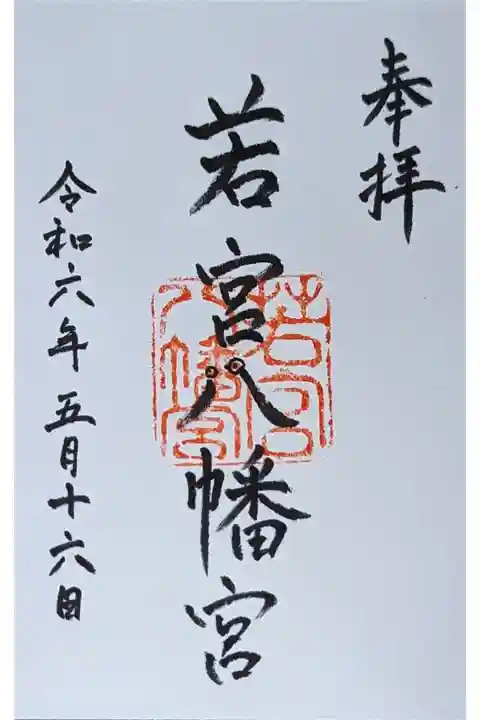 奉拝
若宮八幡宮
若宮八幡宮
令和六年五月十六日